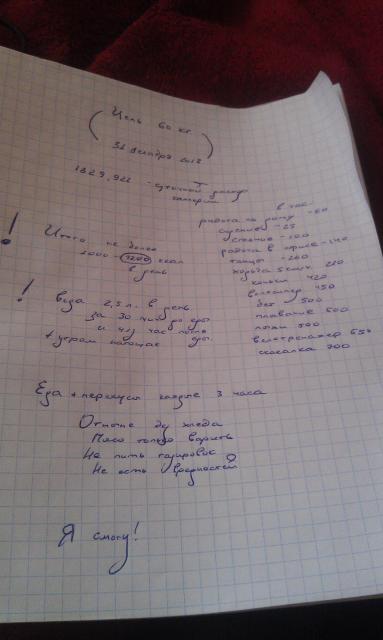 Цель 60 кг.
31 декабря 2012
1829,922 - суточный расход
калорий
! Итого не более
1000 - 1200 ккал
в день
! вода 2,5 л. в день
за 30 мин до еды
и через час после
+ утром натощак
в час
работа по дому -60
сидение -25
стояние -100
работа в офисе -140
танцы -260
ходьба 5 км/ч 210
коньки 420
велосипед 450
бег 500
плавание 500
лыжи 500
велотренажер 650
скакалка 700
Еда + перекусы каждые 3 часа
Отныне без хлеба
Мясо только варить
Не пить газировок
Не есть вредностей
Я смогу!